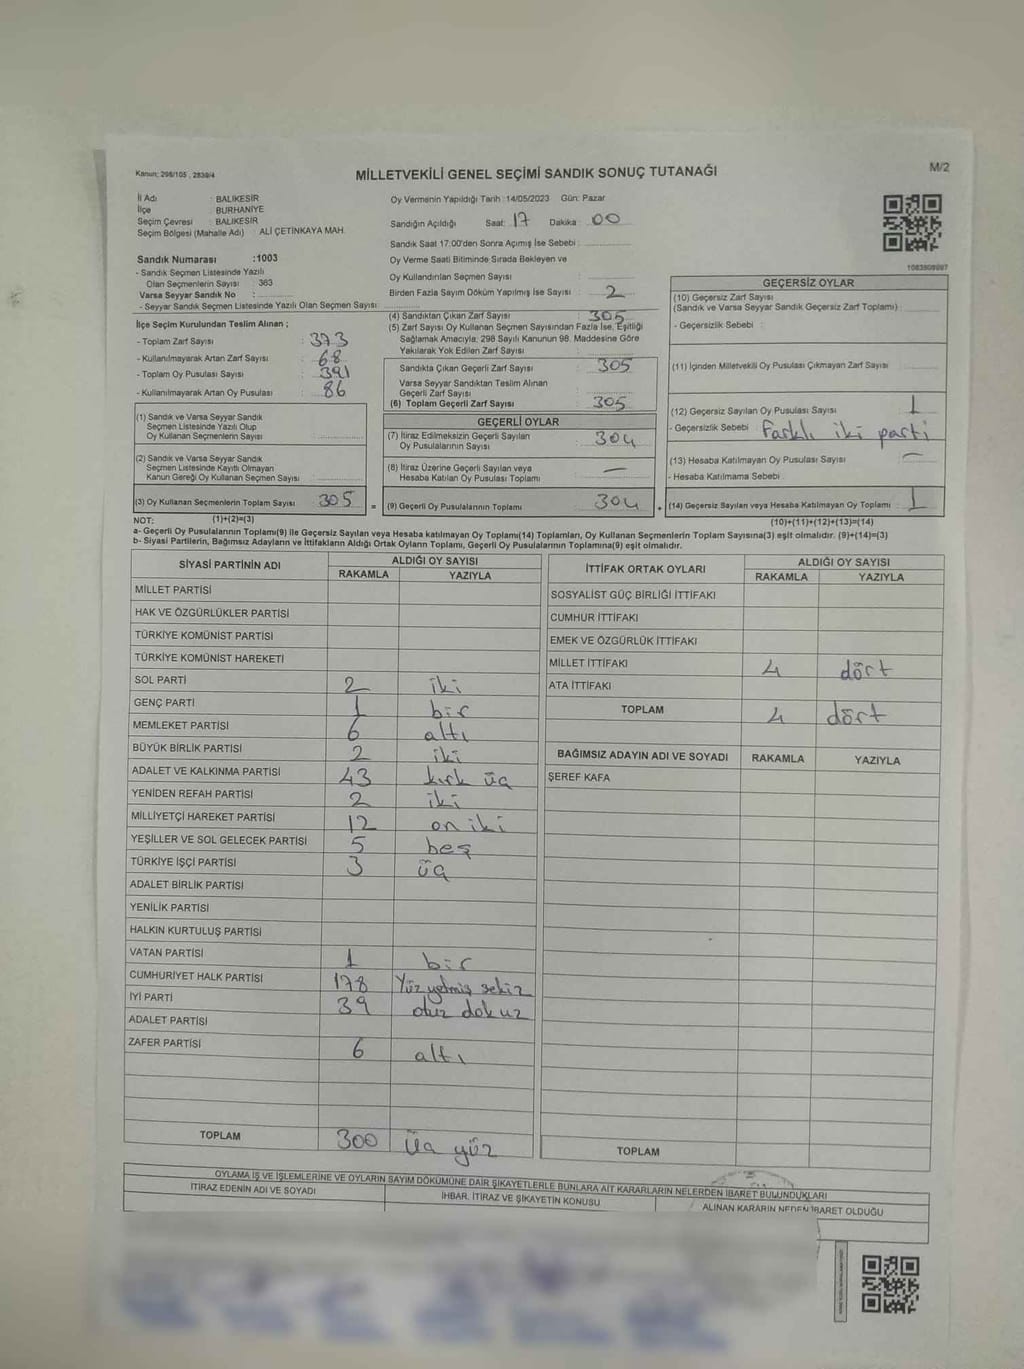 Kanun: 298/105 , 2839/4
MİLLETVEKİLİ GENEL SEÇİMİ SANDIK SONUÇ TUTANAĞI
M/2
İl Adı : BALIKESİR
İlçe : BURHANİYE
Seçim Çevresi : BALIKESİR
Seçim Bölgesi (Mahalle Adı) : ALİ ÇETİNKAYA MAH.
Sandık Numarası :1003
- Sandık Seçmen Listesinde Yazılı
Olan Seçmenlerin Sayısı : 363
Varsa Seyyar Sandık No :
- Seyyar Sandık Seçmen Listesinde Yazılı Olan Seçmen Sayısı:
Oy Vermenin Yapıldığı Tarih :14/05/2023 Gün: Pazar
Sandığın Açıldığı Saat: 17 Dakika: 00
Sandık Saat 17:00'den Sonra Açımış İse Sebebi :
Oy Verme Saati Bitiminde Sırada Bekleyen ve
Oy Kullandırılan Seçmen Sayısı :
Birden Fazla Sayım Döküm Yapılmış İse Sayısı : 2
İlçe Seçim Kurulundan Teslim Alınan ;
- Toplam Zarf Sayısı : 373
- Kullanılmayarak Artan Zarf Sayısı : 68
- Toplam Oy Pusulası Sayısı : 391
- Kullanılmayarak Artan Oy Pusulası : 86
(1) Sandık ve Varsa Seyyar Sandık
Seçmen Listesinde Yazılı Olup
Oy Kullanan Seçmenlerin Sayısı
(2) Sandık ve Varsa Seyyar Sandık
Seçmen Listesinde Kayıtlı Olmayan
Kanun Gereği Oy Kullanan Seçmen Sayısı
(3) Oy Kullanan Seçmenlerin Toplam Sayısı 305
(1)+(2)=(3)
(4) Sandıktan Çıkan Zarf Sayısı : 305
(5) Zarf Sayısı Oy Kullanan Seçmen Sayısından Fazla İse, Eşitliği
Sağlamak Amacıyla; 298 Sayılı Kanunun 98. Maddesine Göre
Yakılarak Yok Edilen Zarf Sayısı :
Sandıkta Çıkan Geçerli Zarf Sayısı : 305
Varsa Seyyar Sandıktan Teslim Alınan
Geçerli Zarf Sayısı :
(6) Toplam Geçerli Zarf Sayısı : 305
GEÇERLİ OYLAR
(7) İtiraz Edilmeksizin Geçerli Sayılan
Oy Pusulalarının Sayısı : 304
(8) İtiraz Üzerine Geçerli Sayılan veya
Hesaba Katılan Oy Pusulası Toplamı : —
= (9) Geçerli Oy Pusulalarının Toplamı : 304
1083809997
GEÇERSİZ OYLAR
(10) Geçersiz Zarf Sayısı
(Sandık ve Varsa Seyyar Sandık Geçersiz Zarf Toplamı)
- Geçersizlik Sebebi :
(11) İçinden Milletvekili Oy Pusulası Çıkmayan Zarf Sayısı :
(12) Geçersiz Sayılan Oy Pusulası Sayısı : 1
- Geçersizlik Sebebi : Farklı iki parti
(13) Hesaba Katılmayan Oy Pusulası Sayısı : —
- Hesaba Katılmama Sebebi :
(14) Geçersiz Sayılan veya Hesaba Katılmayan Oy Toplamı : 1
(10)+(11)+(12)+(13)=(14)
NOT:
a- Geçerli Oy Pusulalarının Toplamı(9) ile Geçersiz Sayılan veya Hesaba katılmayan Oy Toplamı(14) Toplamları, Oy Kullanan Seçmenlerin Toplam Sayısına(3) eşit olmalıdır. (9)+(14)=(3)
b- Siyasi Partilerin, Bağımsız Adayların ve İttifakların Aldığı Ortak Oyların Toplamı, Geçerli Oy Pusulalarının Toplamına(9) eşit olmalıdır.
SİYASİ PARTİNİN ADI ALDIĞI OY SAYISI
RAKAMLA YAZIYLA
MİLLET PARTİSİ
HAK VE ÖZGÜRLÜKLER PARTİSİ
TÜRKİYE KOMÜNİST PARTİSİ
TÜRKİYE KOMÜNİST HAREKETİ
SOL PARTİ 2 iki
GENÇ PARTİ 1 bir
MEMLEKET PARTİSİ 6 altı
BÜYÜK BİRLİK PARTİSİ 2 iki
ADALET VE KALKINMA PARTİSİ 43 kırk üç
YENİDEN REFAH PARTİSİ 2 iki
MİLLİYETÇİ HAREKET PARTİSİ 12 on iki
YEŞİLLER VE SOL GELECEK PARTİSİ 5 beş
TÜRKİYE İŞÇİ PARTİSİ 3 üç
ADALET BİRLİK PARTİSİ
YENİLİK PARTİSİ
HALKIN KURTULUŞ PARTİSİ
VATAN PARTİSİ 1 bir
CUMHURİYET HALK PARTİSİ 178 Yüz yetmiş sekiz
İYİ PARTİ 39 otuz dokuz
ADALET PARTİSİ
ZAFER PARTİSİ 6 altı
TOPLAM 300 üç yüz
İTTİFAK ORTAK OYLARI ALDIĞI OY SAYISI
RAKAMLA YAZIYLA
SOSYALİST GÜÇ BİRLİĞİ İTTİFAKI
CUMHUR İTTİFAKI
EMEK VE ÖZGÜRLÜK İTTİFAKI
MİLLET İTTİFAKI 4 dört
ATA İTTİFAKI
TOPLAM 4 dört
BAĞIMSIZ ADAYIN ADI VE SOYADI RAKAMLA YAZIYLA
ŞEREF KAFA
TOPLAM
OYLAMA İŞ VE İŞLEMLERİNE VE OYLARIN SAYIM DÖKÜMÜNE DAİR ŞİKAYETLERLE BUNLARA AİT KARARLARIN NELERDEN İBARET BULUNDUKLARI
İTİRAZ EDENİN ADI VE SOYADI İHBAR, İTİRAZ VE ŞİKAYETİN KONUSU ALINAN KARARIN NEDEN İBARET OLDUĞU